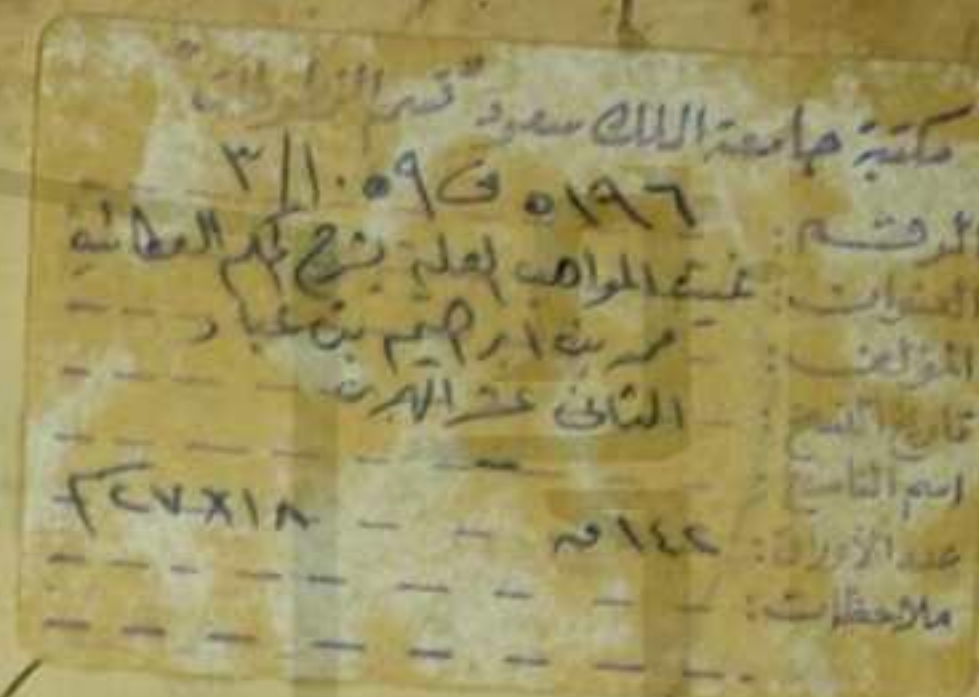 مكتبة جامعة الملك سعود "قسم المخطوطات"
الرقم: ٥١٩٦ ف ١٠٥٩/٣
العنوان: غيث المواهب العلية بشرح الحكم العطائية
المؤلف: محمد بن ابراهيم بن عباد
تاريخ النسخ: الثاني عشر الهجري
اسم الناسخ: -
عدد الأوراق: ١٤٢ ق - - ٢٧×١٨ سم
ملاحظات: